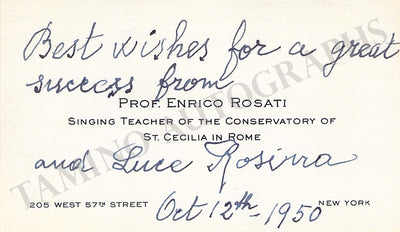 Best wishes for a great
success from
PROF. ENRICO ROSATI
SINGING TEACHER OF THE CONSERVATORY OF
ST. CECILIA IN ROME
and Luce Rosirra
205 WEST 57TH STREET NEW YORK
Oct 12th - 1950
TAMINO AUTOGRAPHS